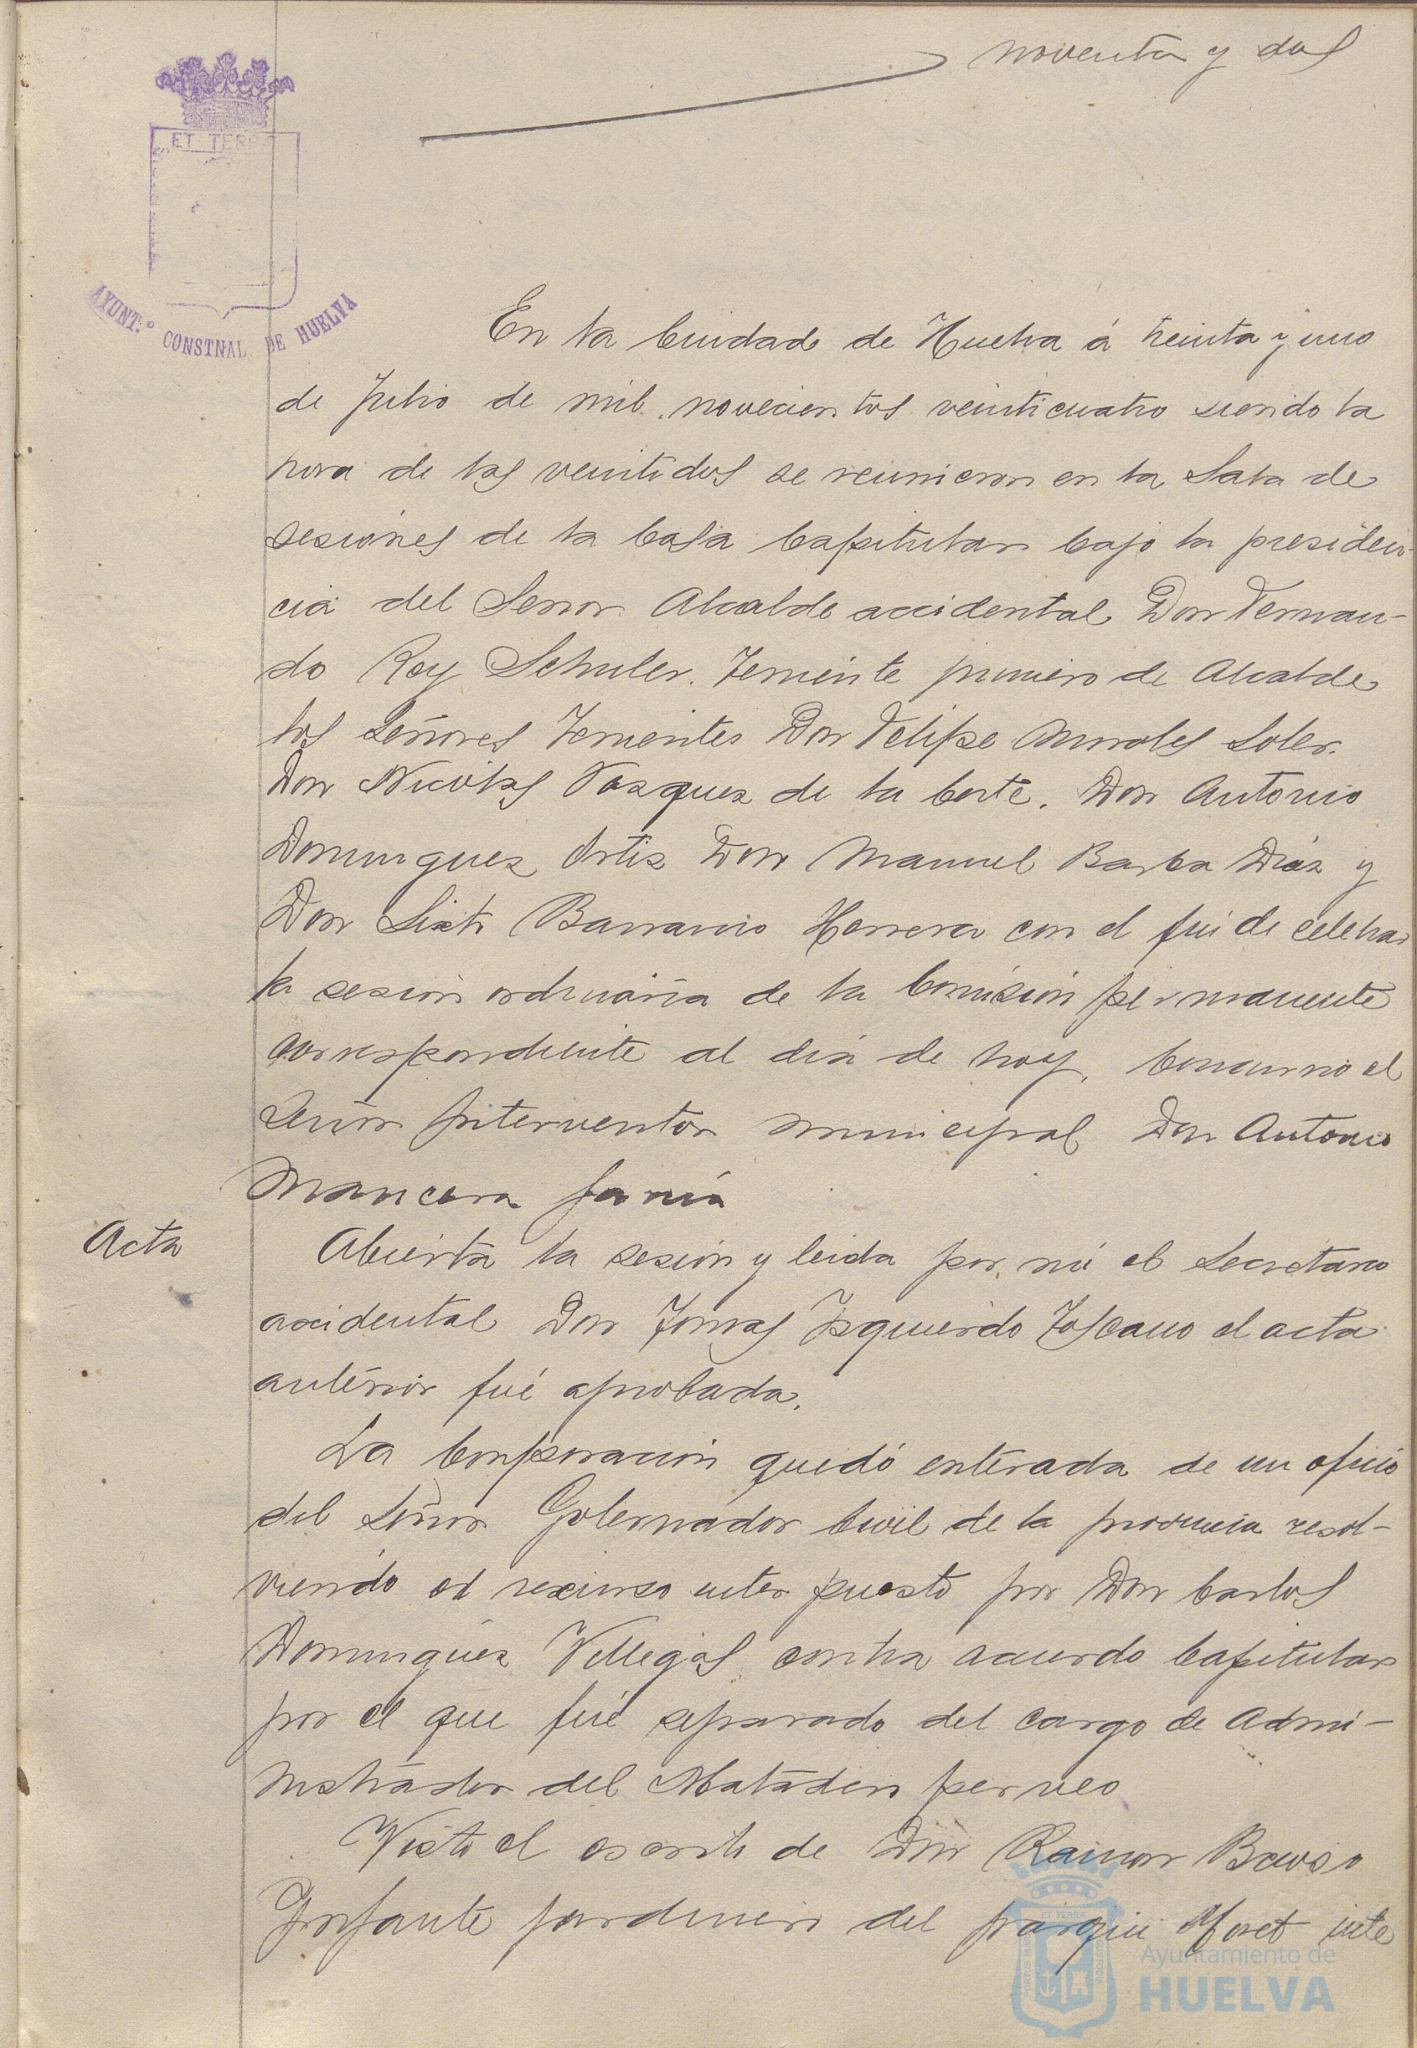 noventa y dos
ET TERRA
AYUNT.º CONSTNAL. DE HUELVA
En la Ciudad de Huelva á treinta y uno
de Julio de mil novecientos veinticuatro siendo la
hora de las veintidos se reunieron en la Sala de
sesiones de la Casa Capitular bajo la presiden-
cia del Señor Alcalde accidental Don Fernan-
do Rey Schuler. Teniente primero de Alcalde
los Señores Tenientes Don Felipe Morales Soler.
Don Nicolas Vazquez de la Corte. Don Antonio
Dominguez Ortiz Don Manuel Barba Diaz y
Don Sixto Barranco Herrera con el fin de celebrar
la sesion ordinaria de la Comisión permanente
correspondiente al dia de hoy. Concurrió el
Señor Interventor municipal Don Antonio
Mancera
Acta
Abierta la sesión y leida por mi el Secretario
accidental Don Tomas Izquierdo Toscano el acta
anterior fué aprobada.
La Corporación quedó enterada de un oficio
del Señor Gobernador Civil de la provincia resol-
viendo el recurso interpuesto por Don Carlos
Dominguez Villegas contra acuerdo Capitular
por el que fué separado del cargo de Admi-
nistrador del Matadero
Visto el escrito de Don Ramon
Infante jardinero del parque Moret inte
Ayuntamiento de
HUELVA